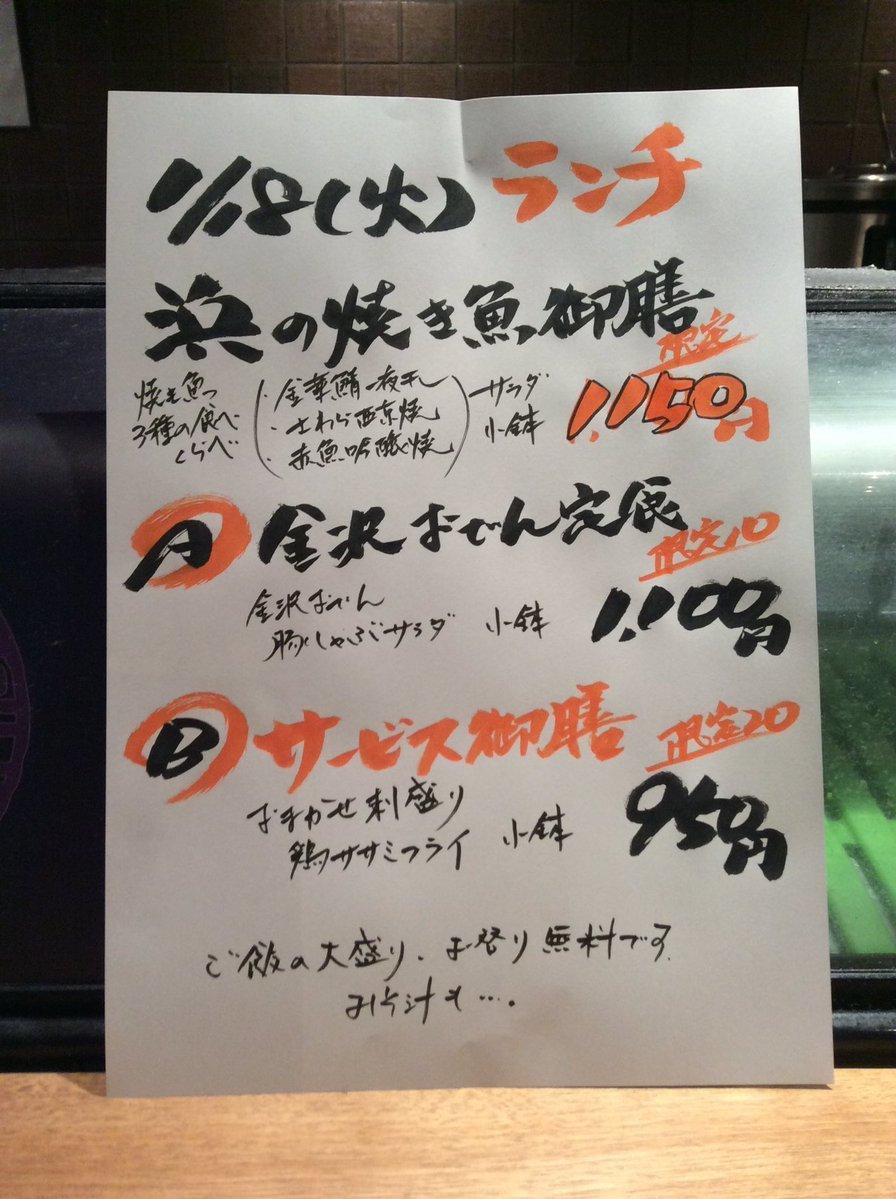 1/18(火) ランチ
浜の焼き魚御膳
限定
焼き魚
3種の食べ
くらべ
・金華鯖一夜干し
・さわら西京焼
・赤魚吟醸焼
サラダ
小鉢
1,150円
A 金沢おでん定食
限定10
金沢おでん
豚しゃぶサラダ 小鉢
1,100円
B サービス御膳
限定20
おまかせ刺盛り
鶏ササミフライ 小鉢
950円
ご飯の大盛り、お替り無料です。
みそ汁も…。